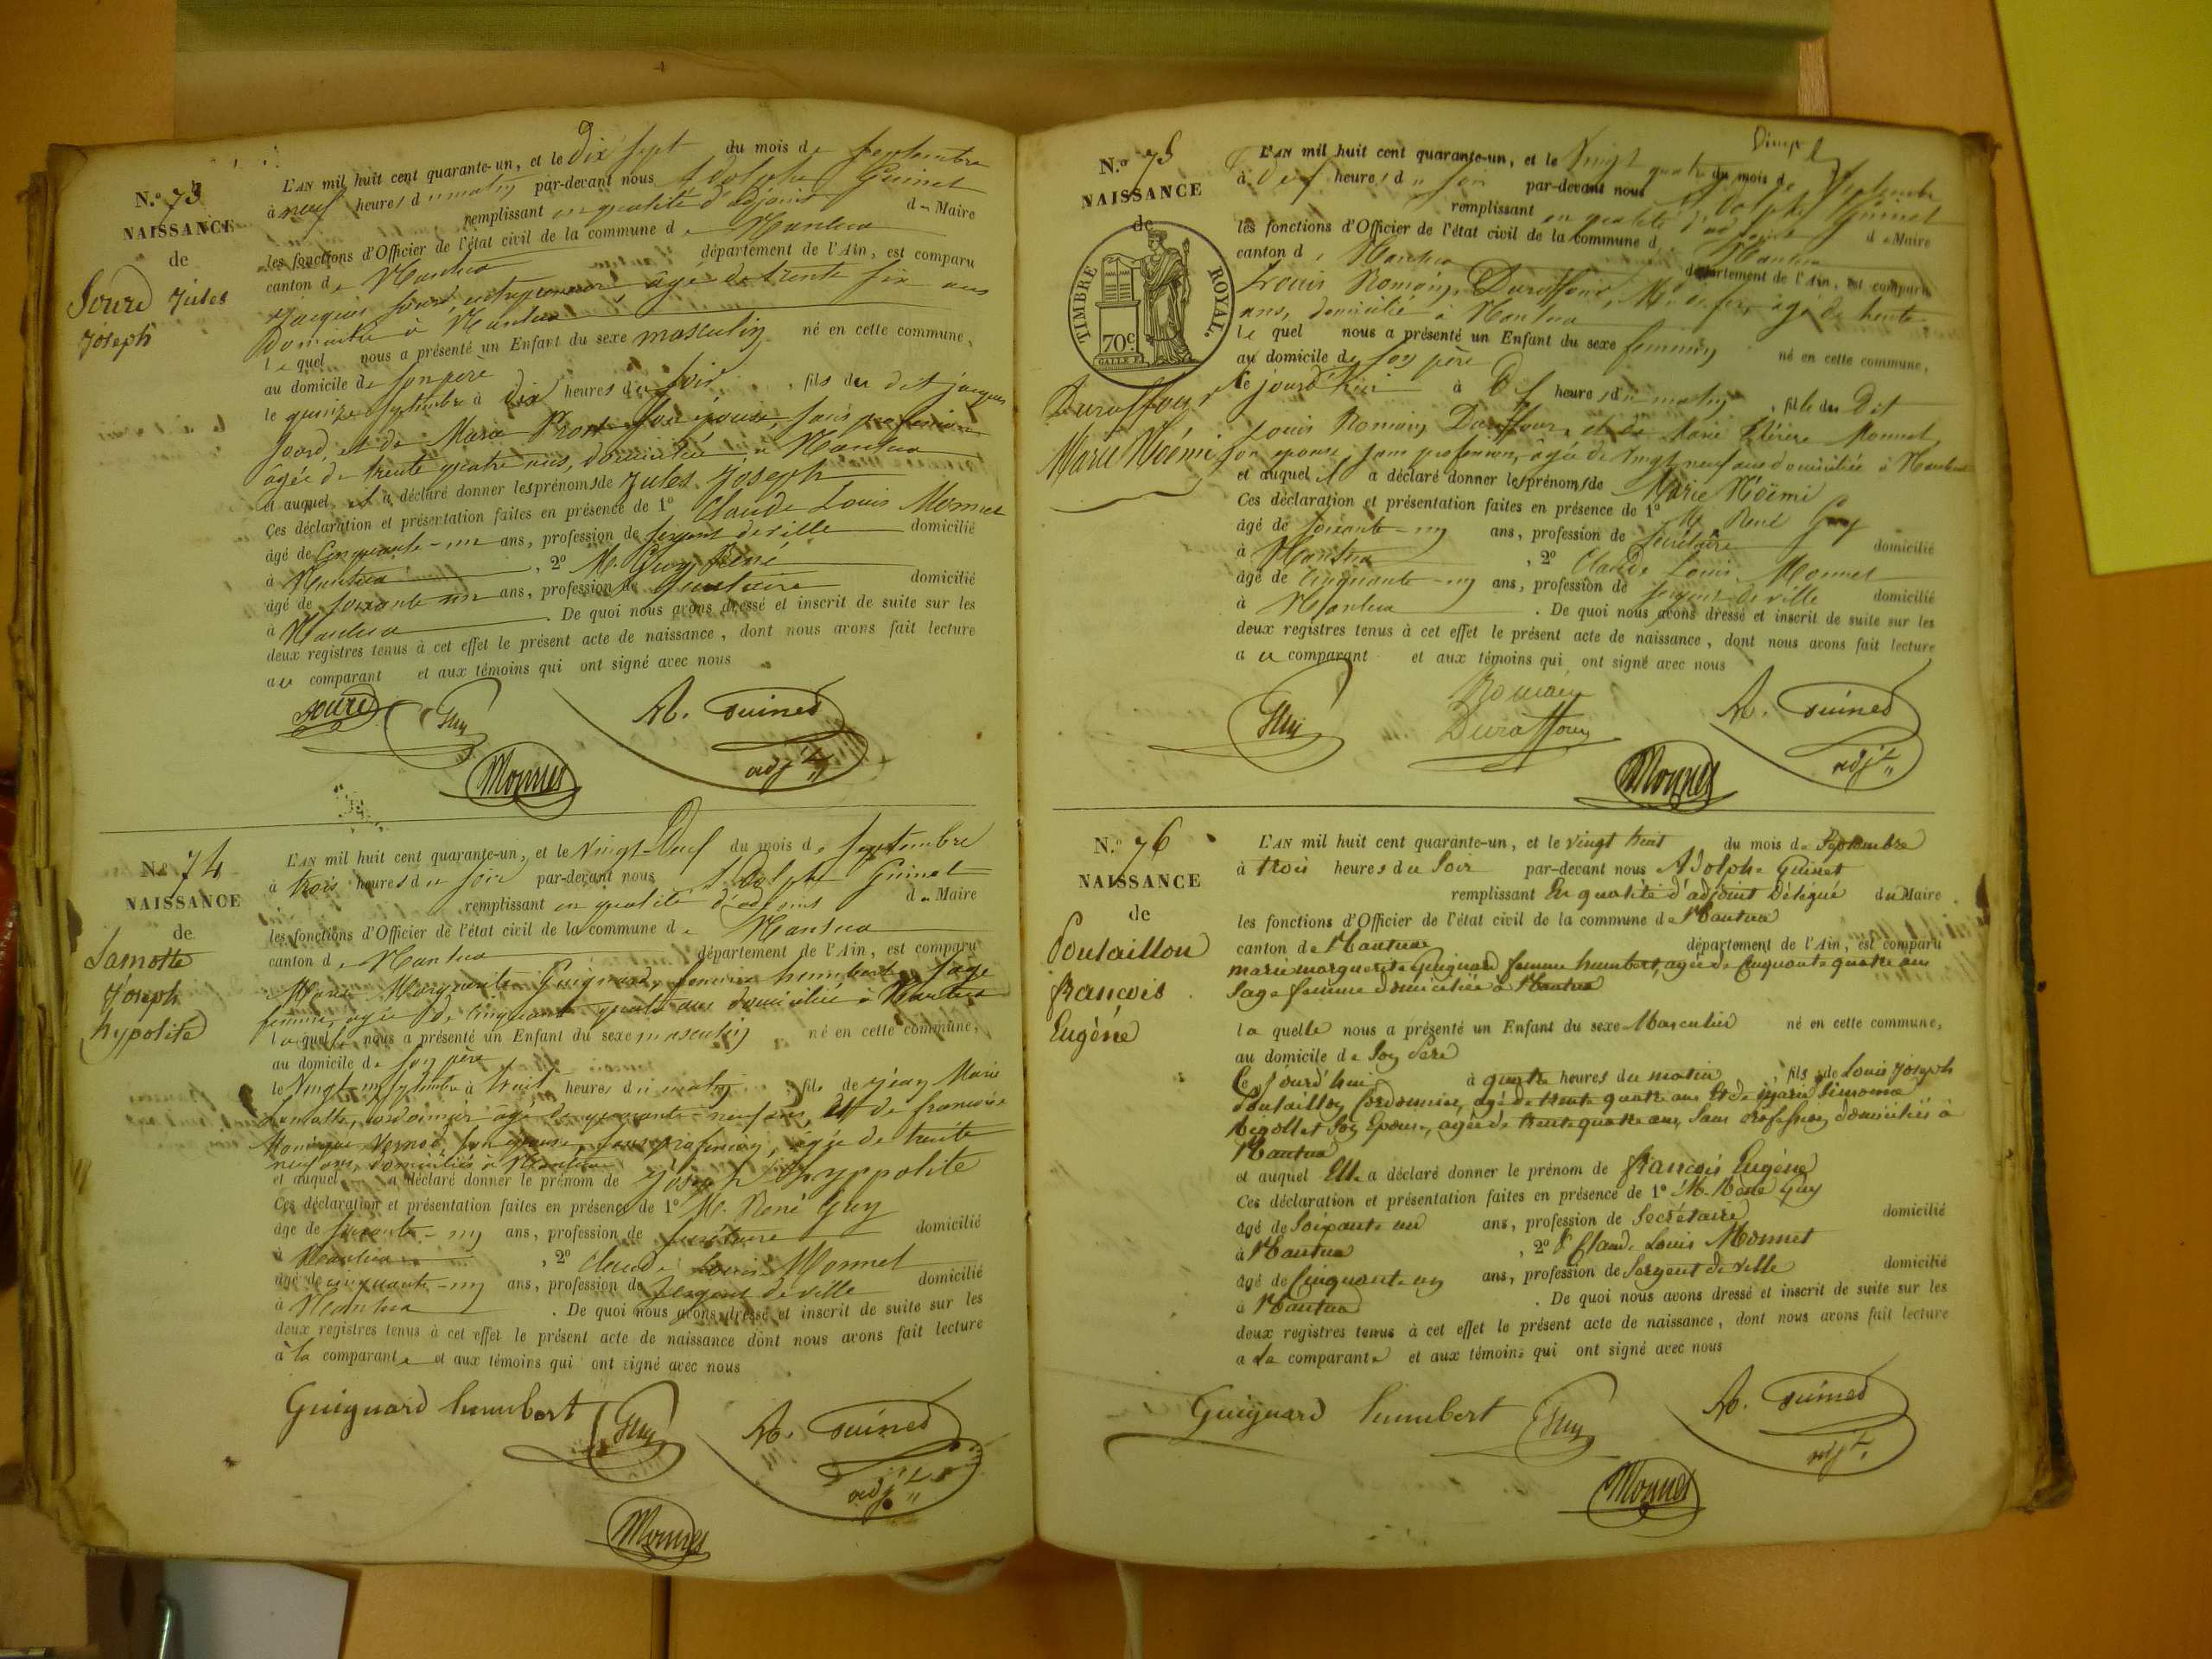 N.o 73
NAISSANCE
de
Sourd Jules
Joseph
L'AN mil huit cent quarante-un, et le Dix sept du mois de septembre
à neuf heures du matin par-devant nous Adolphe Guinet
remplissant en qualité d'adjoint du Maire
les fonctions d'Officier de l'état civil de la commune de Nantua
canton de Nantua département de l'Ain, est comparu
Jacques Sourd, entrepreneur âgé de trente six ans
Domicilié à Nantua
lequel nous a présenté un Enfant du sexe masculin né en cette commune,
au domicile de son père
le quinze septembre à dix heures du soir, fils du dit jacques
Sourd, et de Marie Pront son épouse, sans profession
âgée de trente quatre ans, domiciliés à Nantua
et auquel il a déclaré donner les prénoms de Jules Joseph
Ces déclaration et présentation faites en présence de 1o Claude Louis Monnet
âgé de Cinquante-un ans, profession de sergent de ville domicilié
à Nantua, 2o M. Guy René
âgé de soixante un ans, profession de secrétaire domicilié
à Nantua. De quoi nous avons dressé et inscrit de suite sur les
deux registres tenus à cet effet le présent acte de naissance, dont nous avons fait lecture
au comparant et aux témoins qui ont signé avec nous
Sourd Guy A. Guinet
adjt
Monnet
N.o 74
NAISSANCE
de
Lamotte
Joseph
hypolite
L'AN mil huit cent quarante-un, et le Vingt-Deux du mois de septembre
à trois heures du soir par-devant nous Adolphe Guinet
remplissant en qualité d'adjoint du Maire
les fonctions d'Officier de l'état civil de la commune de Nantua
canton de Nantua département de l'Ain, est comparu
Marie Marguerite Guignard, femme humbert, sage
femme, agée de cinquante quatre ans domiciliée à Nantua
laquelle nous a présenté un Enfant du sexe masculin né en cette commune,
au domicile de son père
le Vingt un septembre à huit heures du matin, fils de jean Marie
Lamotte, cordonnier âgé de quarante-neuf ans, et de françoise
Monique Vernot son épouse, sans profession, âgée de trente
neuf ans, domiciliés à Nantua
et auquel a déclaré donner le prénom de Joseph hyppolite
Ces déclaration et présentation faites en présence de 1o M. René Guy
âgé de soixante-un ans, profession de secrétaire domicilié
à Nantua, 2o Claude Louis Monnet
âgé de cinquante-un ans, profession de sergent de ville domicilié
à Nantua. De quoi nous avons dressé et inscrit de suite sur les
deux registres tenus à cet effet le présent acte de naissance dont nous avons fait lecture
à la comparante et aux témoins qui ont signé avec nous
Guignard humbert Guy A. Guinet
adjt
Monnet
N.o 75
NAISSANCE
de
TIMBRE ROYAL.
70c.
Duraffour
Marie Noémi
L'AN mil huit cent quarante-un, et le Vingt quatre du mois de septembre
à heures du soir par-devant nous Adolphe Guinet
remplissant en qualité d'adjoint du Maire
les fonctions d'Officier de l'état civil de la commune de Nantua
canton de Nantua département de l'Ain, est comparu
Louis Romain Duraffour, âgé de trente
ans, domicilié à Nantua
lequel nous a présenté un Enfant du sexe féminin né en cette commune,
au domicile de son père
ce jourd'hui à heures du matin, fille du Dit
Louis Romain Duraffour, et de Marie Monnet,
son épouse sans profession, agée de vingt neuf ans domiciliée à Nantua
et auquel il a déclaré donner les prénoms de Marie Nöémi
Ces déclaration et présentation faites en présence de 1o M. René Guy
âgé de soixante-un ans, profession de Secrétaire domicilié
à Nantua, 2o Claude Louis Monnet
âgé de cinquante-un ans, profession de sergent de ville domicilié
à Nantua. De quoi nous avons dressé et inscrit de suite sur les
deux registres tenus à cet effet le présent acte de naissance, dont nous avons fait lecture
au comparant et aux témoins qui ont signé avec nous
Guy Romain Duraffour A. Guinet
adjt
Monnet
N.o 76
NAISSANCE
de
Poulaillon
françois
Eugène
L'AN mil huit cent quarante-un, et le vingt huit du mois de Septembre
à trois heures du Soir par-devant nous Adolphe Guinet
remplissant En qualité d'adjoint Délégué du Maire
les fonctions d'Officier de l'état civil de la commune de Nantua
canton de Nantua département de l'Ain, est comparu
marie marguerite Guignard femme humbert, agée de Cinquante quatre ans
Sage femme domiciliée à Nantua
laquelle nous a présenté un Enfant du sexe Masculin né en cette commune,
au domicile de Son Père
Ce jourd'hui à quatre heures du matin, fils de Louis Joseph
Poulaillon Cordonnier, agé de trente quatre ans Et de Marie
Son Epouse, agée de trente quatre ans, Sans profession, domiciliés à
Nantua
et auquel Elle a déclaré donner le prénom de françois Eugène
Ces déclaration et présentation faites en présence de 1o M. Réné Guy
âgé de Soixante un ans, profession de Secrétaire domicilié
à Nantua, 2o Claude Louis Monnet
âgé de Cinquante un ans, profession de Sergent de ville domicilié
à Nantua. De quoi nous avons dressé et inscrit de suite sur les
deux registres tenus à cet effet le présent acte de naissance, dont nous avons fait lecture
a La comparante et aux témoins qui ont signé avec nous
Guignard humbert Guy A. Guinet
adjt
Monnet